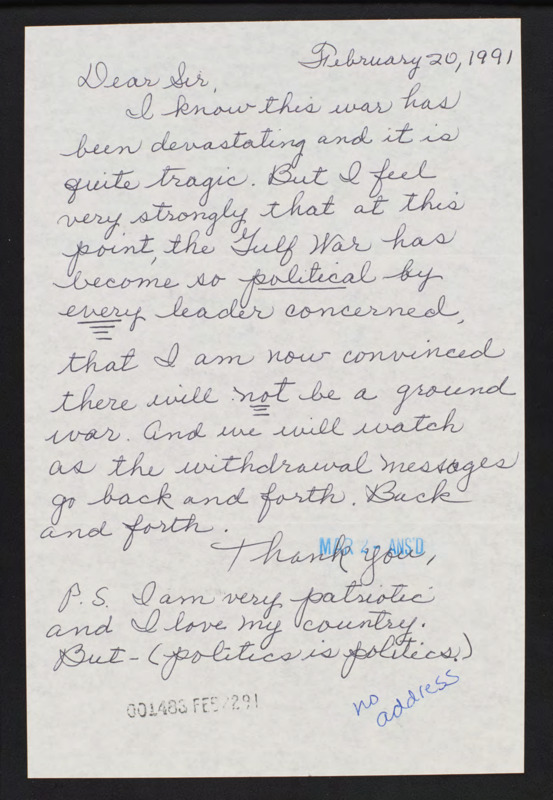 February 20, 1991
Dear Sir,
I know this war has
been devastating and it is
quite tragic. But I feel
very strongly that at this
point, the Gulf War has
become so political by
every leader concerned,
that I am now convinced
there will not be a ground
war. And we will watch
as the withdrawal messages
go back and forth. Back
and forth.
Thank you,
MAR 4 - ANS'D
P.S. I am very patriotic
and I love my country.
But - (politics is politics.)
no
address
001483